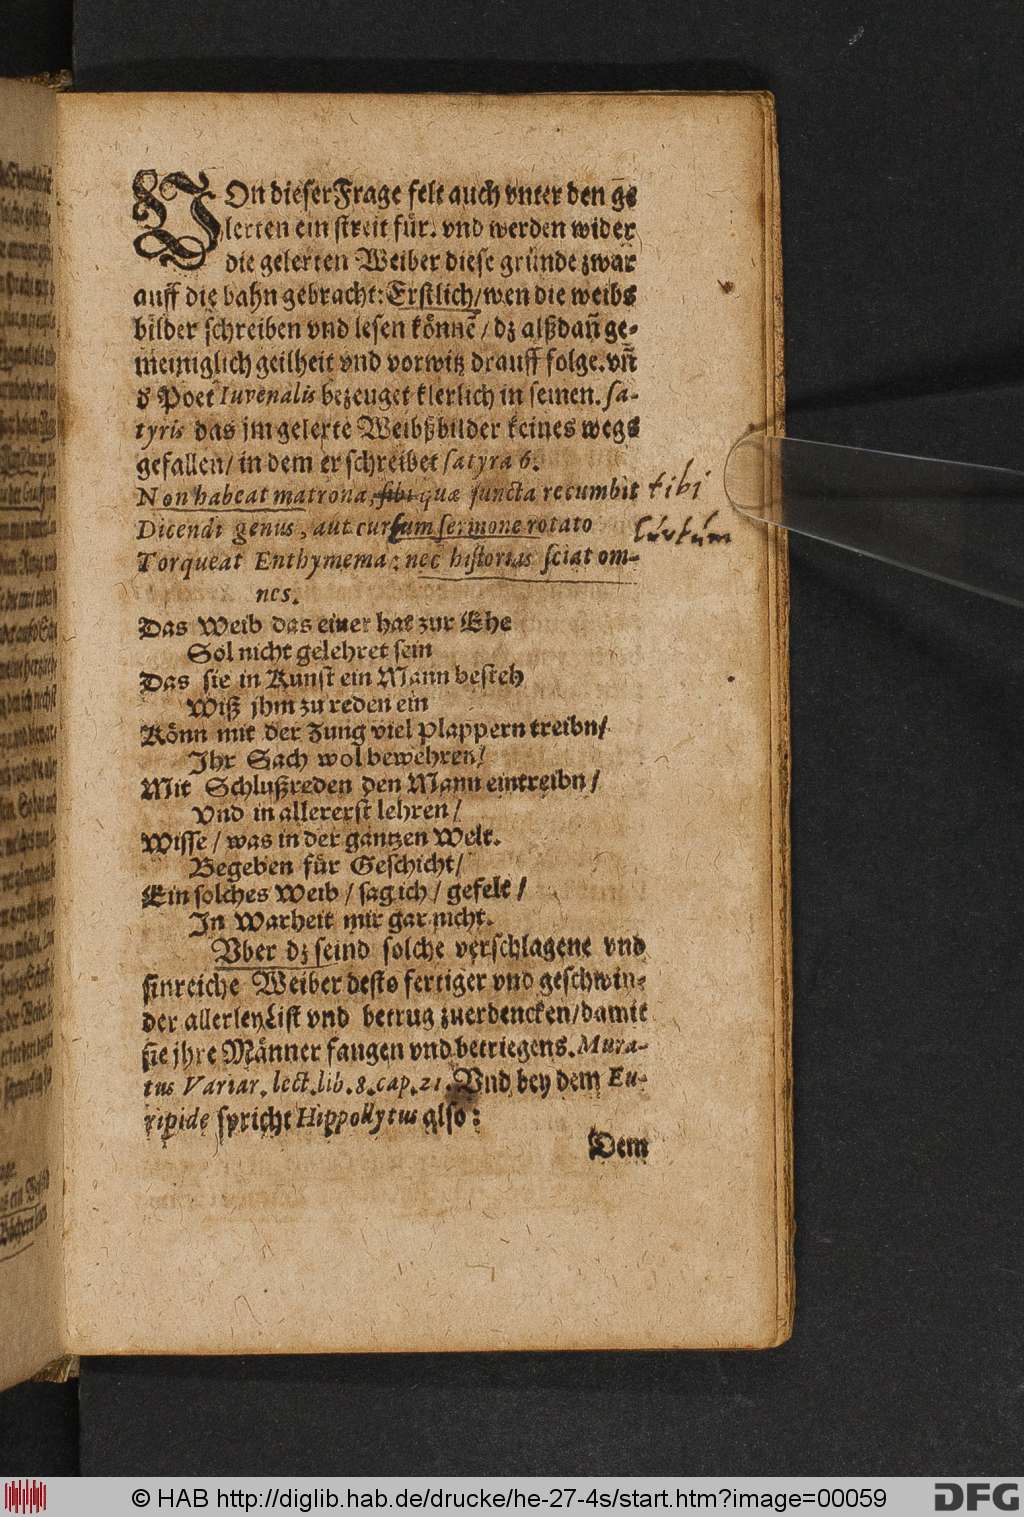 VOn dieser Frage felt auch vnter den ge
lerten ein streit für. vnd werden wider
die gelerten Weiber diese gründe zwar
auff die bahn gebracht: Erstlich/ wen die weibs
bilder schreiben vnd lesen könnẽ/ dz alßdañ ge-
meiniglich geilheit vnd vorwitz drauff folge. vñ
d' Poet Iuvenalis bezeuget klerlich in seinen. sa-
tyris das jm gelerte Weibßbilder keines wegs
gefallen/ in dem er schreibet satyra 6.
Non habeat matrona, sibi quæ juncta recumbit tibi
Dicendi genus, aut cursum sermone rotato cúrtúm
Torqueat Enthymema; nec historias sciat om-
nes.
Das Weib das einer hat zur Ehe
Sol nicht gelehret sein
Das sie in Kunst ein Mann besteh
Wiß jhm zu reden ein
Könn mit der Zung viel plappern treibn/
Ihr Sach wol bewehren/
Mit Schlußreden den Mann eintreibn/
Vnd in allererst lehren/
Wisse/ was in der gantzen Welt.
Begeben für Geschicht/
Ein solches Weib/ sag ich/ gefelt/
In Warheit mir gar nicht.
Vber dz seind solche verschlagene vnd
sinreiche Weiber desto fertiger vnd geschwin-
der allerley List vnd betrug zuerdencken/ damit
sie jhre Männer fangen vnd betriegens. Mura-
tus Variar. lect. lib. 8. cap. 21. Vnd bey dem Eu-
ripide spricht Hippollytus also:
Dem
© HAB http://diglib.hab.de/drucke/he-27-4s/start.htm?image=00059
DFG